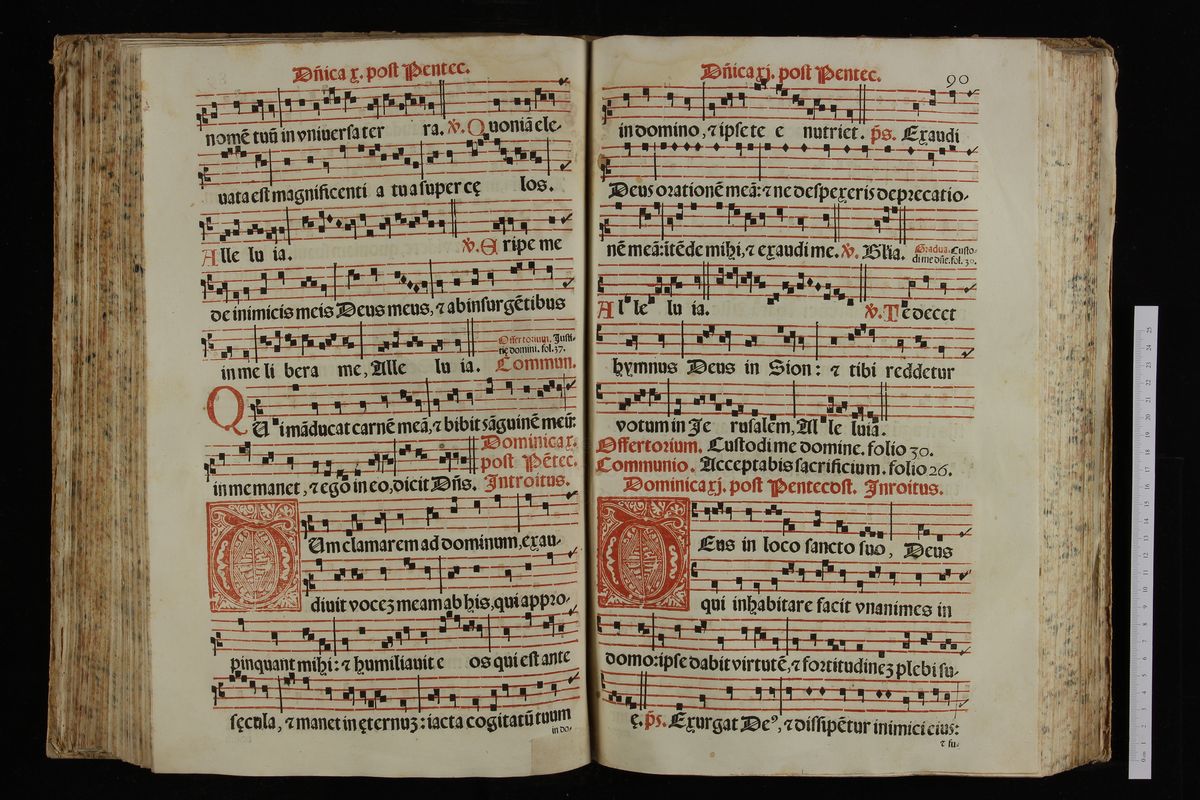 Dñica x. post Pentec.
nomẽ tuũ in vniuersa ter ra. ℣. Quoniã ele-
uata est magnificenti a tua super cę los.
Alle lu ia. ℣. Eripe me
de inimicis meis Deus meus, ⁊ ab insurgẽtibus
in me li bera me, Alle lu ia. Offertorium. Justi-
tię domini. fol. 37.
Commun.
QUi mãducat carnẽ meã, ⁊ bibit sãguinẽ meũ:
in me manet, ⁊ ego in eo, dicit Dñs. Dominica x.
post Pẽtec.
Introitus.
Um clamarem ad dominum, exau-
diuit voceʒ meam ab his, qui appro-
pinquant mihi: ⁊ humiliauit e os qui est ante
sęcula, ⁊ manet in ęternuʒ: iacta cogitatũ tuum
in do-
Dñica xj. post Pentec. 90
in domino, ⁊ ipse te e nutriet. p̃s. Exaudi
Deus orationẽ meã: ⁊ ne despexeris deprecatio-
nẽ meã: itẽde mihi, ⁊ exaudi me. ℣. Gl'ia. Gradua. Custo-
di me dñe. fol. 30.
Al le lu ia. ℣. Te decet
hymnus Deus in Sion: ⁊ tibi reddetur
votum in Je rusalem, Al le luia.
Offertorium. Custodi me domine. folio 30.
Communio. Acceptabis sacrificium. folio 26.
Dominica xj. post Pentecost. Inroitus.
DEus in loco sancto suo, Deus
qui inhabitare facit vnanimes in
domo: ipse dabit virtutẽ, ⁊ fortitudineʒ plebi su-
ę. p̃s. Exurgat De⁹, ⁊ dissipẽtur inimici eius:
⁊ fu-